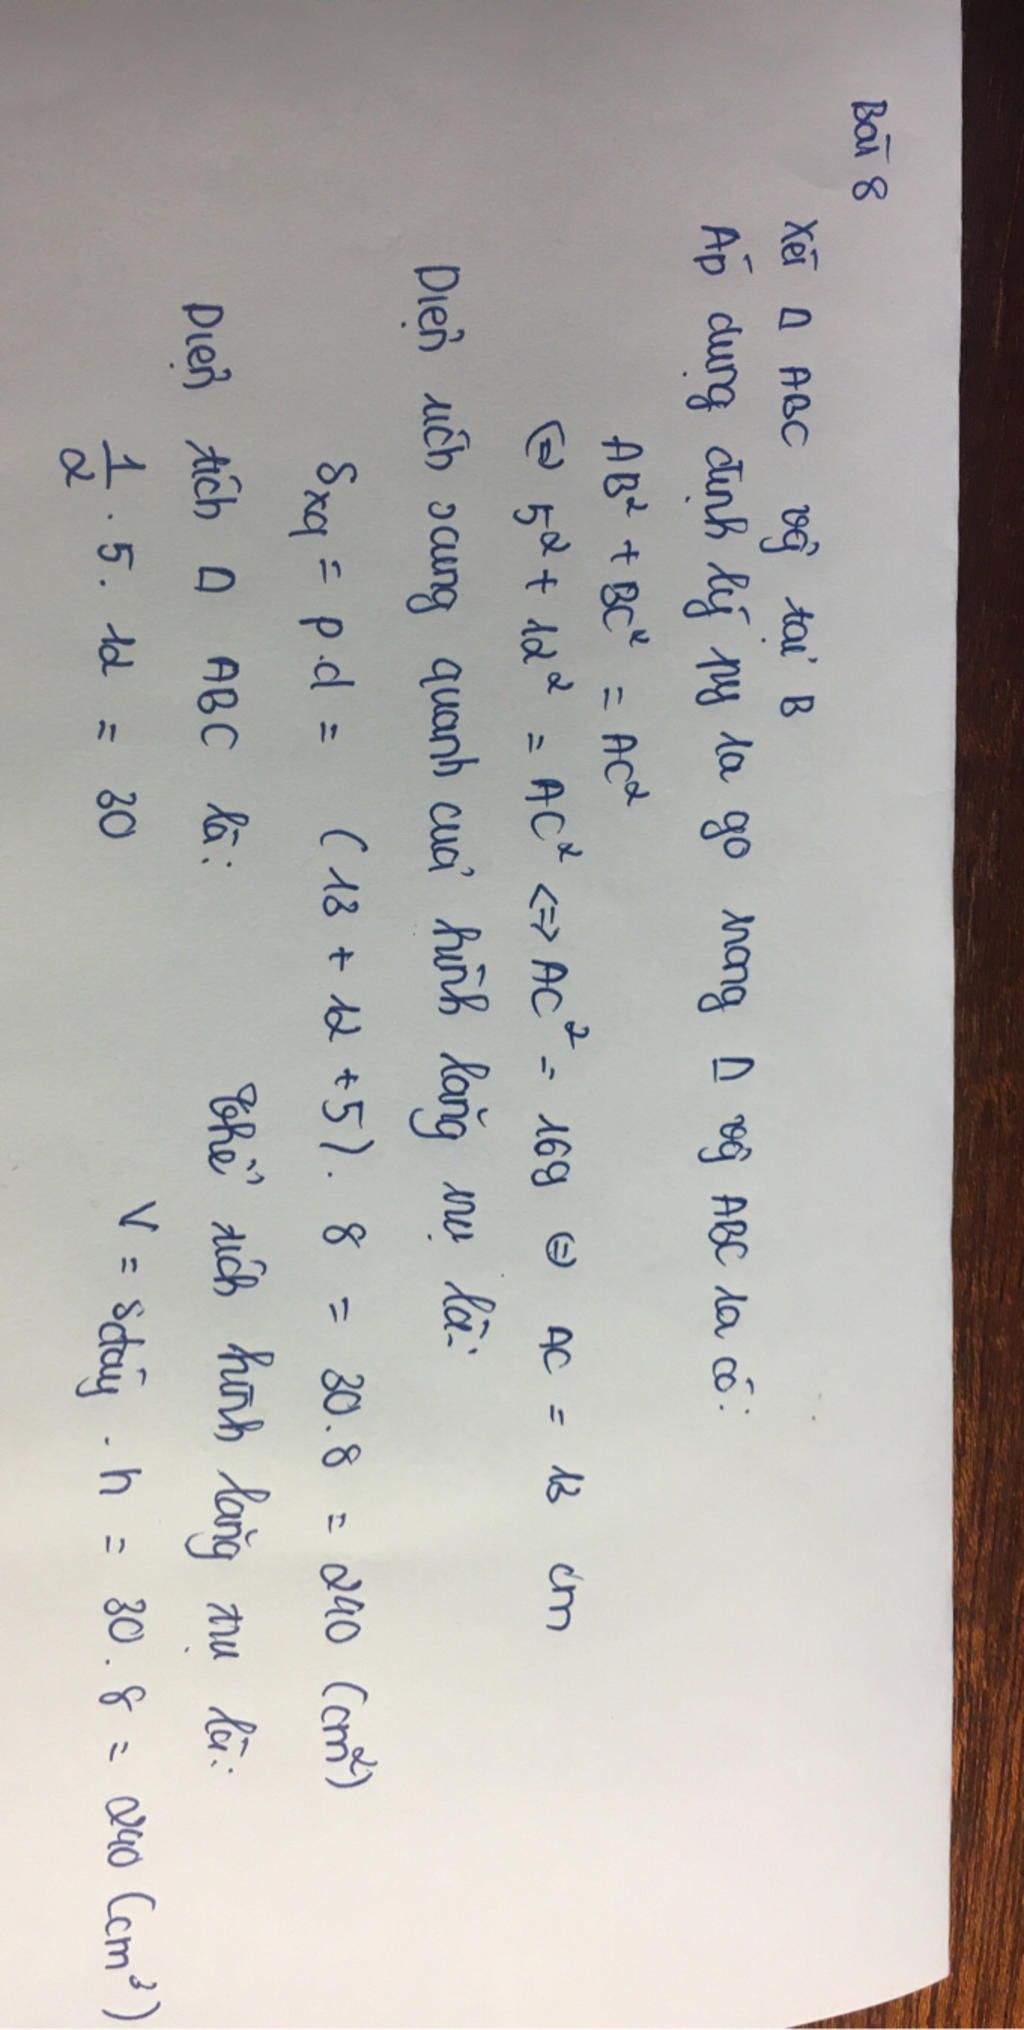 Bài 8
Xét Δ ABC vg̃ tại B
Áp dụng định lý py ta go trong Δ vg̃ ABC ta có:
AB² + BC² = AC²
⇔ 5² + 12² = AC² <=> AC² = 169 ⇔ AC = 13 cm
Diện tích xung quanh của hình lăng trụ là:
Sxq = p.d = (13 + 12 + 5). 8 = 30.8 = 240 (cm²)
Diện tích Δ ABC là:
1/2 . 5. 12 = 30
Thể tích hình lăng trụ là:
V = Sđáy . h = 30.8 = 240 (cm³)